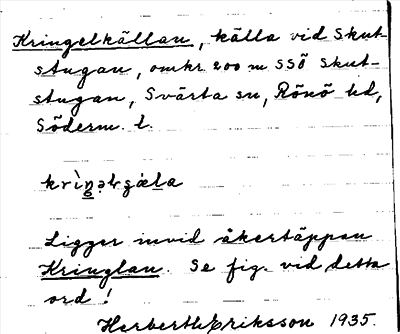 Kringelkällan, källa vid Skut-
stugan, omkr. 200 m SSÖ Skut-
stugan, Svärta sn, Rönö hd,
Söderm. l.
Ligger invid åkertäppan
Kringlan. Se fig. vid detta
ord!
Herbert Eriksson 1935.